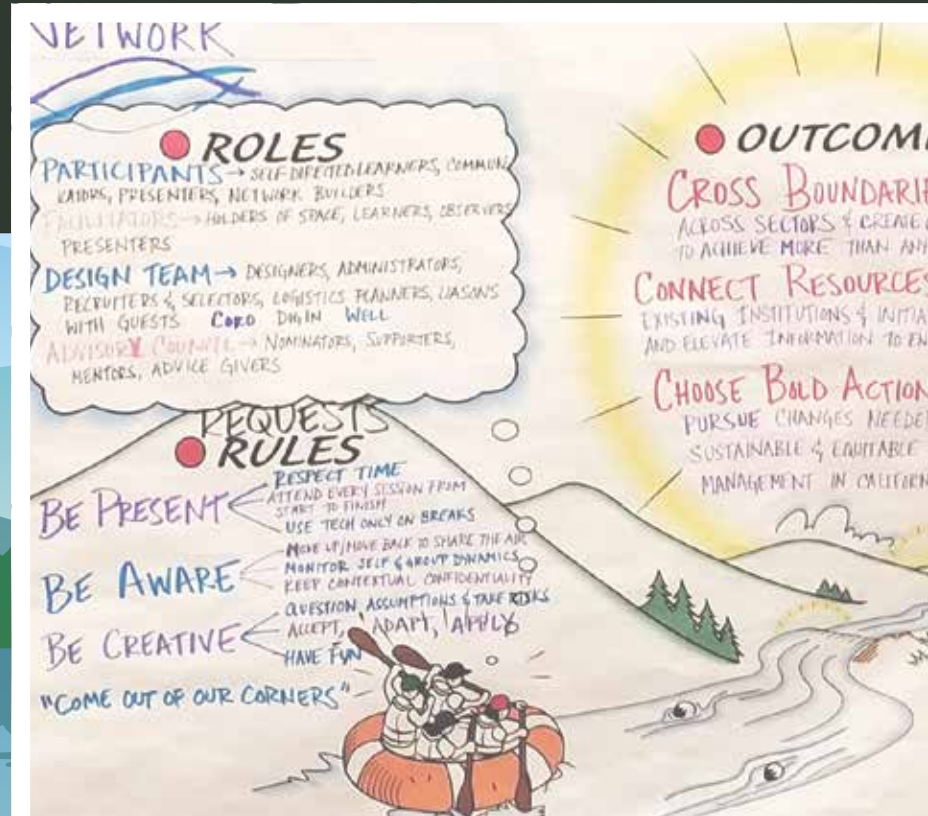 NETWORK
ROLES
PARTICIPANTS → SELF DIRECTED LEARNERS, COMMUN
KATORS, PRESENTERS, NETWORK BUILDERS
FACILITATORS → HOLDERS OF SPACE, LEARNERS, OBSERVERS
PRESENTERS
DESIGN TEAM → DESIGNERS, ADMINISTRATORS,
RECRUITERS & SELECTORS, LOGISTICS PLANNERS, LIASONS
WITH GUESTS CORO DIGIN WELL
ADVISORY COUNCIL → NOMINATORS, SUPPORTERS,
MENTORS, ADVICE GIVERS
REQUESTS
RULES
BE PRESENT
RESPECT TIME
ATTEND EVERY SESSION FROM
START TO FINISH
USE TECH ONLY ON BREAKS
BE AWARE
MOVE UP/MOVE BACK TO SHARE THE AIR
MONITOR SELF & GROUP DYNAMICS
KEEP CONTEXTUAL CONFIDENTIALITY
BE CREATIVE
QUESTION ASSUMPTIONS & TAKE RISKS
ACCEPT, ADAPT, APPLY
HAVE FUN
"COME OUT OF OUR CORNERS"
OUTCOM
CROSS BOUNDARI
ACROSS SECTORS & CREATE
TO ACHIEVE MORE THAN ANY
CONNECT RESOURCES
EXISTING INSTITUTIONS & INITIA
AND ELEVATE INFORMATION TO EN
CHOOSE BOLD ACTION
PURSUE CHANGES NEEDE
SUSTAINABLE & EQUITABLE
MANAGEMENT IN CALIFORN